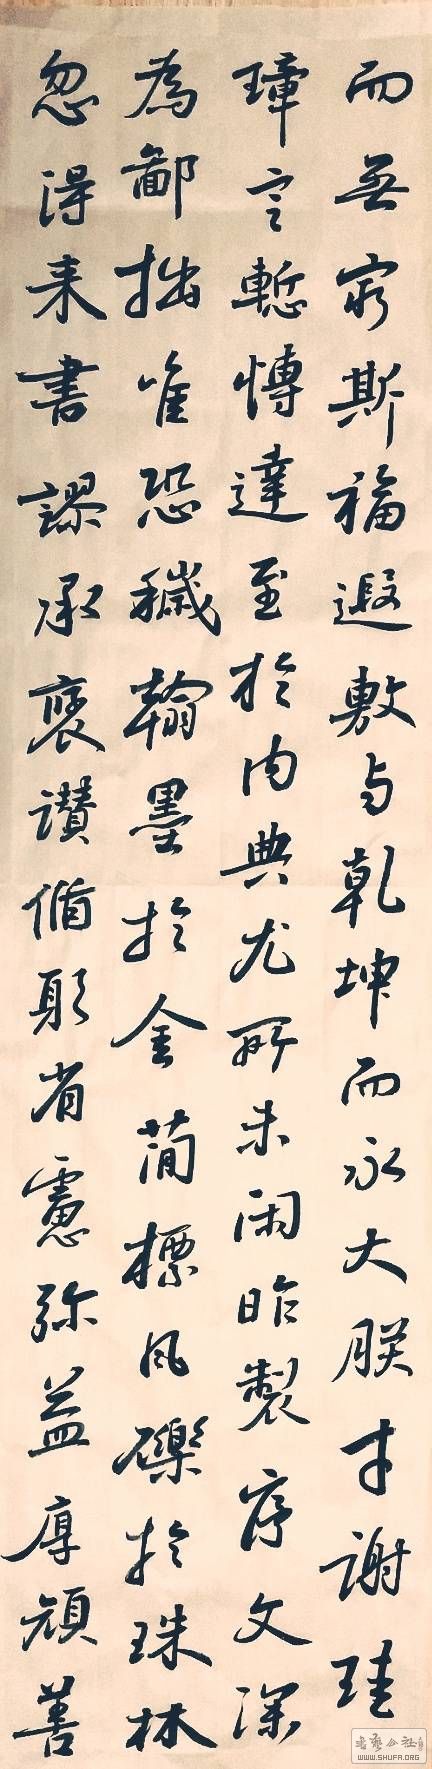 而無窮斯福遐敷与乾坤而永大朕才謝珪
璋言慙博達至於内典尤所未閑昨製序文深
為鄙拙唯恐穢翰墨於金簡標瓦礫於珠林
忽得来書謬承褒讚循躬省慮弥益厚顔善
书艺公社
WWW.SHUFA.ORG